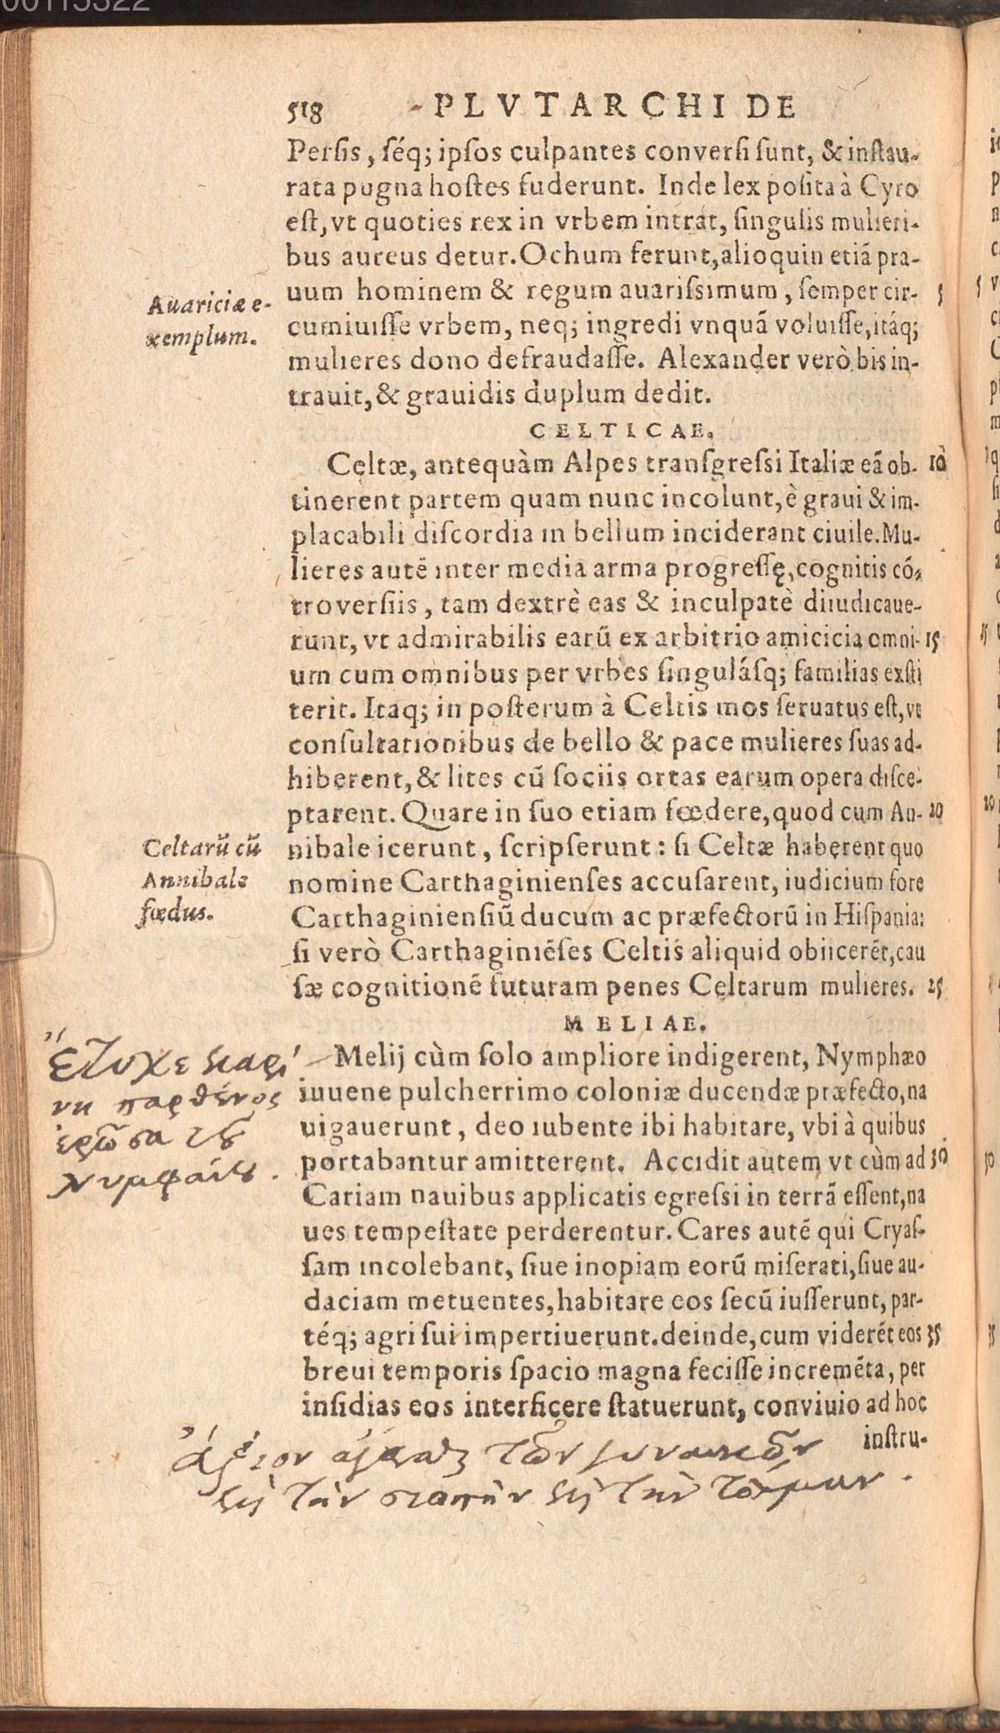 00115322
518 PLVTARCHI DE
Persis, séq; ipsos culpantes conversi sunt, & instau-
rata pugna hostes fuderunt. Inde lex posita à Cyro
est, vt quoties rex in vrbem intrat, singulis mulieri-
bus aureus detur. Ochum ferunt, alioquin etiã pra-
uum hominem & regum auarissimum, semper cir- 5
cumiuisse vrbem, neq; ingredi vnquã voluisse, itáq;
mulieres dono defraudasse. Alexander verò bis in-
trauit, & grauidis duplum dedit.
Auariciæ e-
xemplum.
CELTICAE.
Celtæ, antequàm Alpes transgressi Italiæ eã ob- 10
tinerent partem quam nunc incolunt, è graui & im-
placabili discordia in bellum inciderant ciuile. Mu-
lieres autẽ inter media arma progressę, cognitis cõ-
troversiis, tam dextrè eas & inculpatè diiudicaue-
runt, vt admirabilis earũ ex arbitrio amicicia omni- 15
um cum omnibus per vrbes singulásq; familias exsti
terit. Itaq; in posterum à Celtis mos seruatus est, vt
consultationibus de bello & pace mulieres suas ad-
hiberent, & lites cũ sociis ortas earum opera disce-
ptarent. Quare in suo etiam fœdere, quod cum An- 20
nibale icerunt, scripserunt: si Celtæ haberent quo
nomine Carthaginienses accusarent, iudicium fore
Carthaginiensiũ ducum ac præfectorũ in Hispania:
si verò Carthaginiẽses Celtis aliquid obiicerẽt, cau
sæ cognitionẽ futuram penes Celtarum mulieres. 25
Celtarũ cũ
Annibale
fœdus.
MELIAE.
Melij cùm solo ampliore indigerent, Nymphæo
iuuene pulcherrimo coloniæ ducendæ præfecto, na
uigauerunt, deo iubente ibi habitare, vbi à quibus
portabantur amitterent. Accidit autem vt cùm ad 30
Cariam nauibus applicatis egressi in terrã essent, na
ues tempestate perderentur. Cares autẽ qui Cryas-
sam incolebant, siue inopiam eorũ miserati, siue au-
daciam metuentes, habitare eos secũ iusserunt, par-
téq; agri sui impertiuerunt. deinde, cum viderẽt eos 35
breui temporis spacio magna fecisse incremẽta, per
insidias eos interficere statuerunt, conviuio ad hoc
instru-
Ἔτυχε Καρί
νη παρθένος
ἐρῶσα τοῦ
Νυμφαίου.
ἄξιον τῶν γυναικῶν
εἰς τὴν σιωπὴν εἰς τὴν τόλμαν.